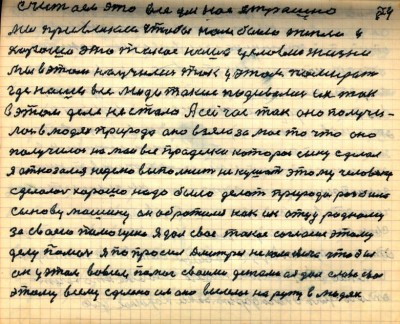 считаем это все для нас страшно 74
мы привыкли чтобы нам было тепло и
хорошо это такое наше условие жизни
мы в этом научились так и этом помирать
где нашей все люди такие подевались их так
в этом деле не стало А сейчас так оно получи-
лось в людях природа оно взяло за мое то что оно
получилось на мои все проделки которая сыну сделал
я отказался неделю выполнит не кушат этому человеку
сделалось хорошо надо было делат природа разбила
сынову машину он обратился как их отцу родному
за своею помощию Я дал свое такое согласие этому
делу помоч я попросил Дмитрия что был
он у этом вовсем помог своими детями а я дал слово свое
этому всему сделано им оно вышло на руту в людях